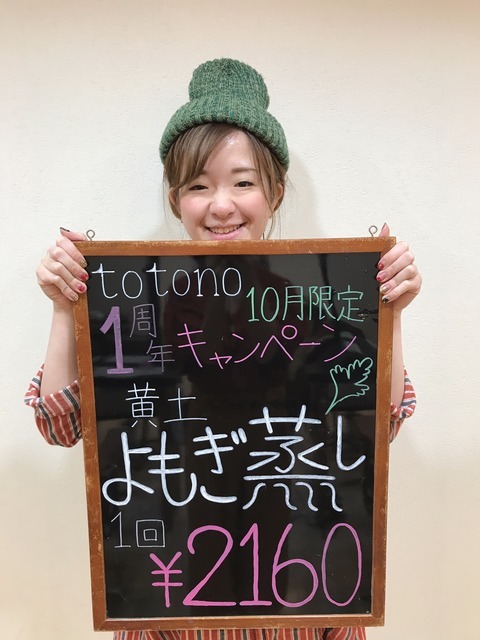 totono
10月限定
1周年キャンペーン
黄土
よもぎ蒸し
1回
¥2160